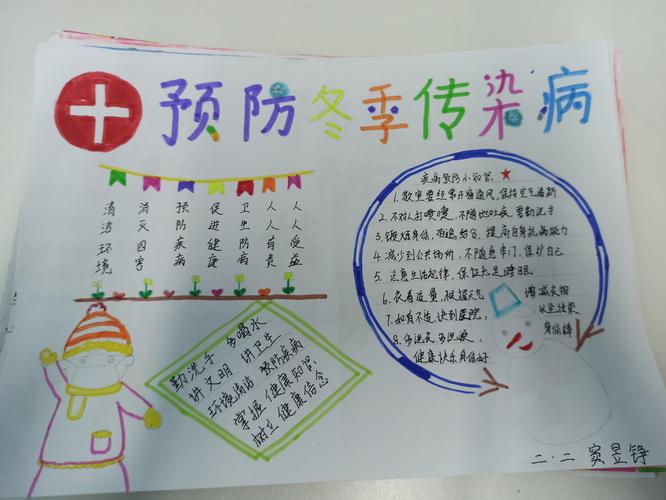 预防冬季传染病
清洁环境
消灭四害
预防疾病
促进健康
卫生防病
人人有责
人人受益
疾病预防小知识
1.教室要经常开窗通风,保持空气清新
2.不对人打喷嚏,不随地吐痰,要勤洗手
3.锻炼身体,劳逸结合,提高自身抗病能力
4.减少到公共场所,不随意串门,保护自己
5.注意生活规律,保证充足睡眠
6.衣着适量,根据天气 增减衣物
7.如有不适,快到医院, 以免传染
8.多洗衣多洗澡, 身体棒
健康快乐身体好
勤洗手 多喝水
讲文明 讲卫生
环境清洁 预防疾病
掌握健康知识,
树立健康信念
二.二 窦昱铮